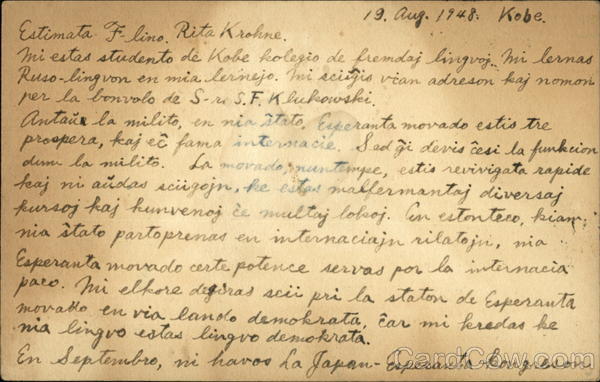 19. Aug. 1948. Kobe.
Estimata F-lino. Rita Krohne.
Mi estas studento de Kobe kolegio de fremdaj lingvoj. Mi lernas
Ruso-lingvon en mia lernejo. Mi sciiĝis vian adreson kaj nomon
per la bonvolo de S-ro S.F. Klukowski.
Antaŭ la milito, en nia ŝtato, Esperanta movado estis tre
prospera, kaj eĉ fama internacie. Sed ĝi devis ĉesi la funkcion
dum la milito. La movado, nuntempe, estis revivigata rapide
kaj ni aŭdas sciigojn, ke estas malfermantaj diversaj
kursoj kaj kunvenoj ĉe multaj lokoj. En estonteco, kiam
nia ŝtato partoprenas en internaciajn rilatojn, nia
Esperanta movado certe potence servas por la internacia
paco. Mi elkore deziras scii pri la staton de Esperanta
movado en via lando demokrata, ĉar mi kredas ke
nia lingvo estas lingvo demokrata.
En Septembro, ni havos la Japan-esperanta kongreson
CardCow.com